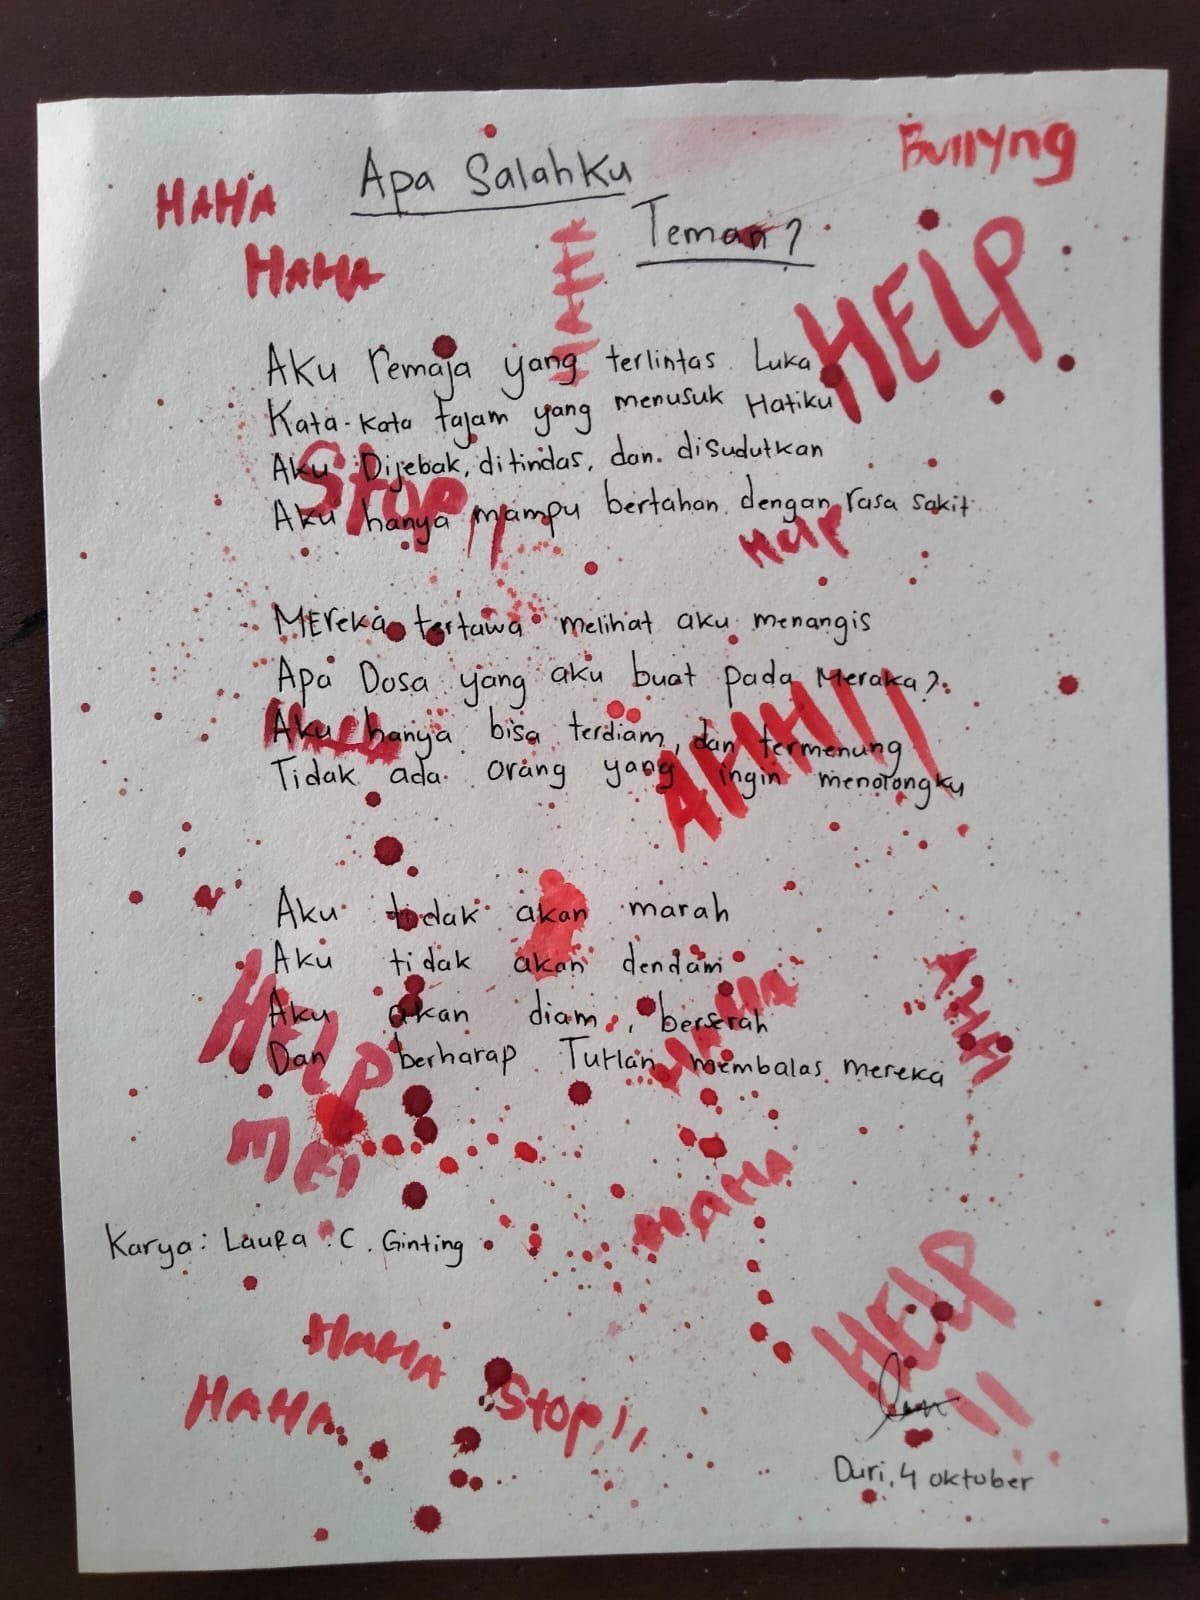 Bullyng
Apa Salahku
HAHA
Teman?
HAHA
HAHA
HELP
Aku remaja yang terlintas Luka
Kata-kata tajam yang menusuk Hatiku
Aku Dijebak, ditindas, dan disudutkan
Stop!!
Aku hanya mampu bertahan dengan rasa sakit
Help
Mereka tertawa melihat aku menangis
Apa Dosa yang aku buat pada Meraka?
Aku hanya bisa terdiam, dan termenung
Tidak ada orang yang ingin menolongku
Aku tidak akan marah
Aku tidak akan dendam
HAHA
Aku akan diam, berserah
Dan berharap Tuhan membalas mereka
HAHA
HELP
HAHA
Karya: Laura C. Ginting
HELP
!!
HAHA
HAHA
Stop!!
Duri, 4 oktober